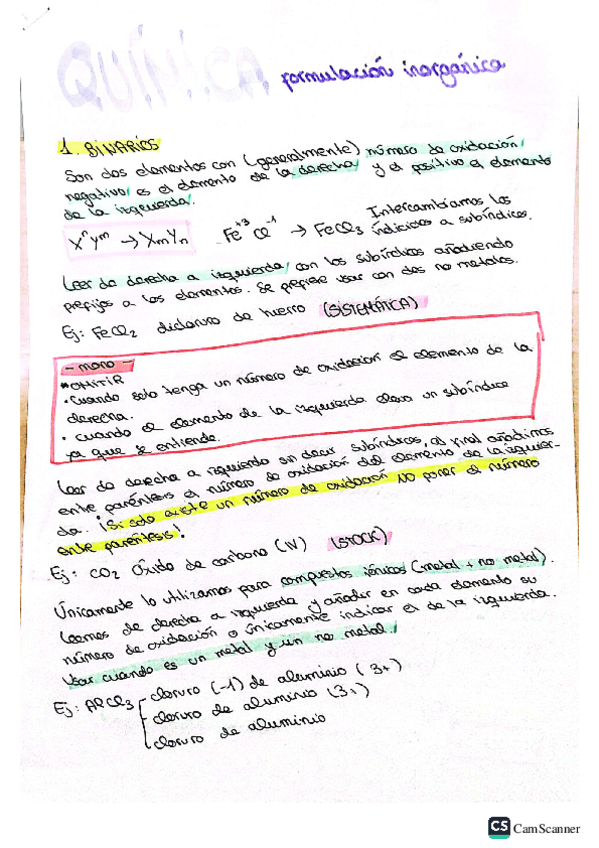 QUÍMICA formulación inorgánica
1. BINARIOS
Son dos elementos con (generalmente) número de oxidación
negativo es el elemento de la derecha y el positivo el elemento
de la izquierda.
XⁿYᵐ → XmYn Fe⁺³ Cl⁻¹ → FeCl3 Intercambiamos los
indicios a subíndices.
Leer de derecha a izquierda con los subíndices añadiendo
prefijos a los elementos. Se prefiere usar con dos no metales.
Ej: FeCl2 dicloruro de hierro (SISTEMÁTICA)
- mono -
*OMITIR
• Cuando solo tenga un número de oxidación el elemento de la
derecha.
• Cuando el elemento de la izquierda lleva un subíndice
ya que se entiende.
Leer de derecha a izquierda sin decir subíndices, al final añadimos
entre paréntesis el número de oxidación del elemento de la izquier-
da. ¡Si solo existe un número de oxidación NO poner el número
entre paréntesis!
Ej: CO2 Óxido de carbono (IV) (STOCK)
Únicamente lo utilizamos para compuestos iónicos (metal + no metal).
Leemos de derecha a izquierda y añader en cada elemento su
número de oxidación o únicamente indicar el de la izquierda.
Usar cuando es un metal y un no metal.
Ej: AlCl3 cloruro (-1) de aluminio (3+)
cloruro de aluminio (3+)
cloruro de aluminio
CS CamScanner